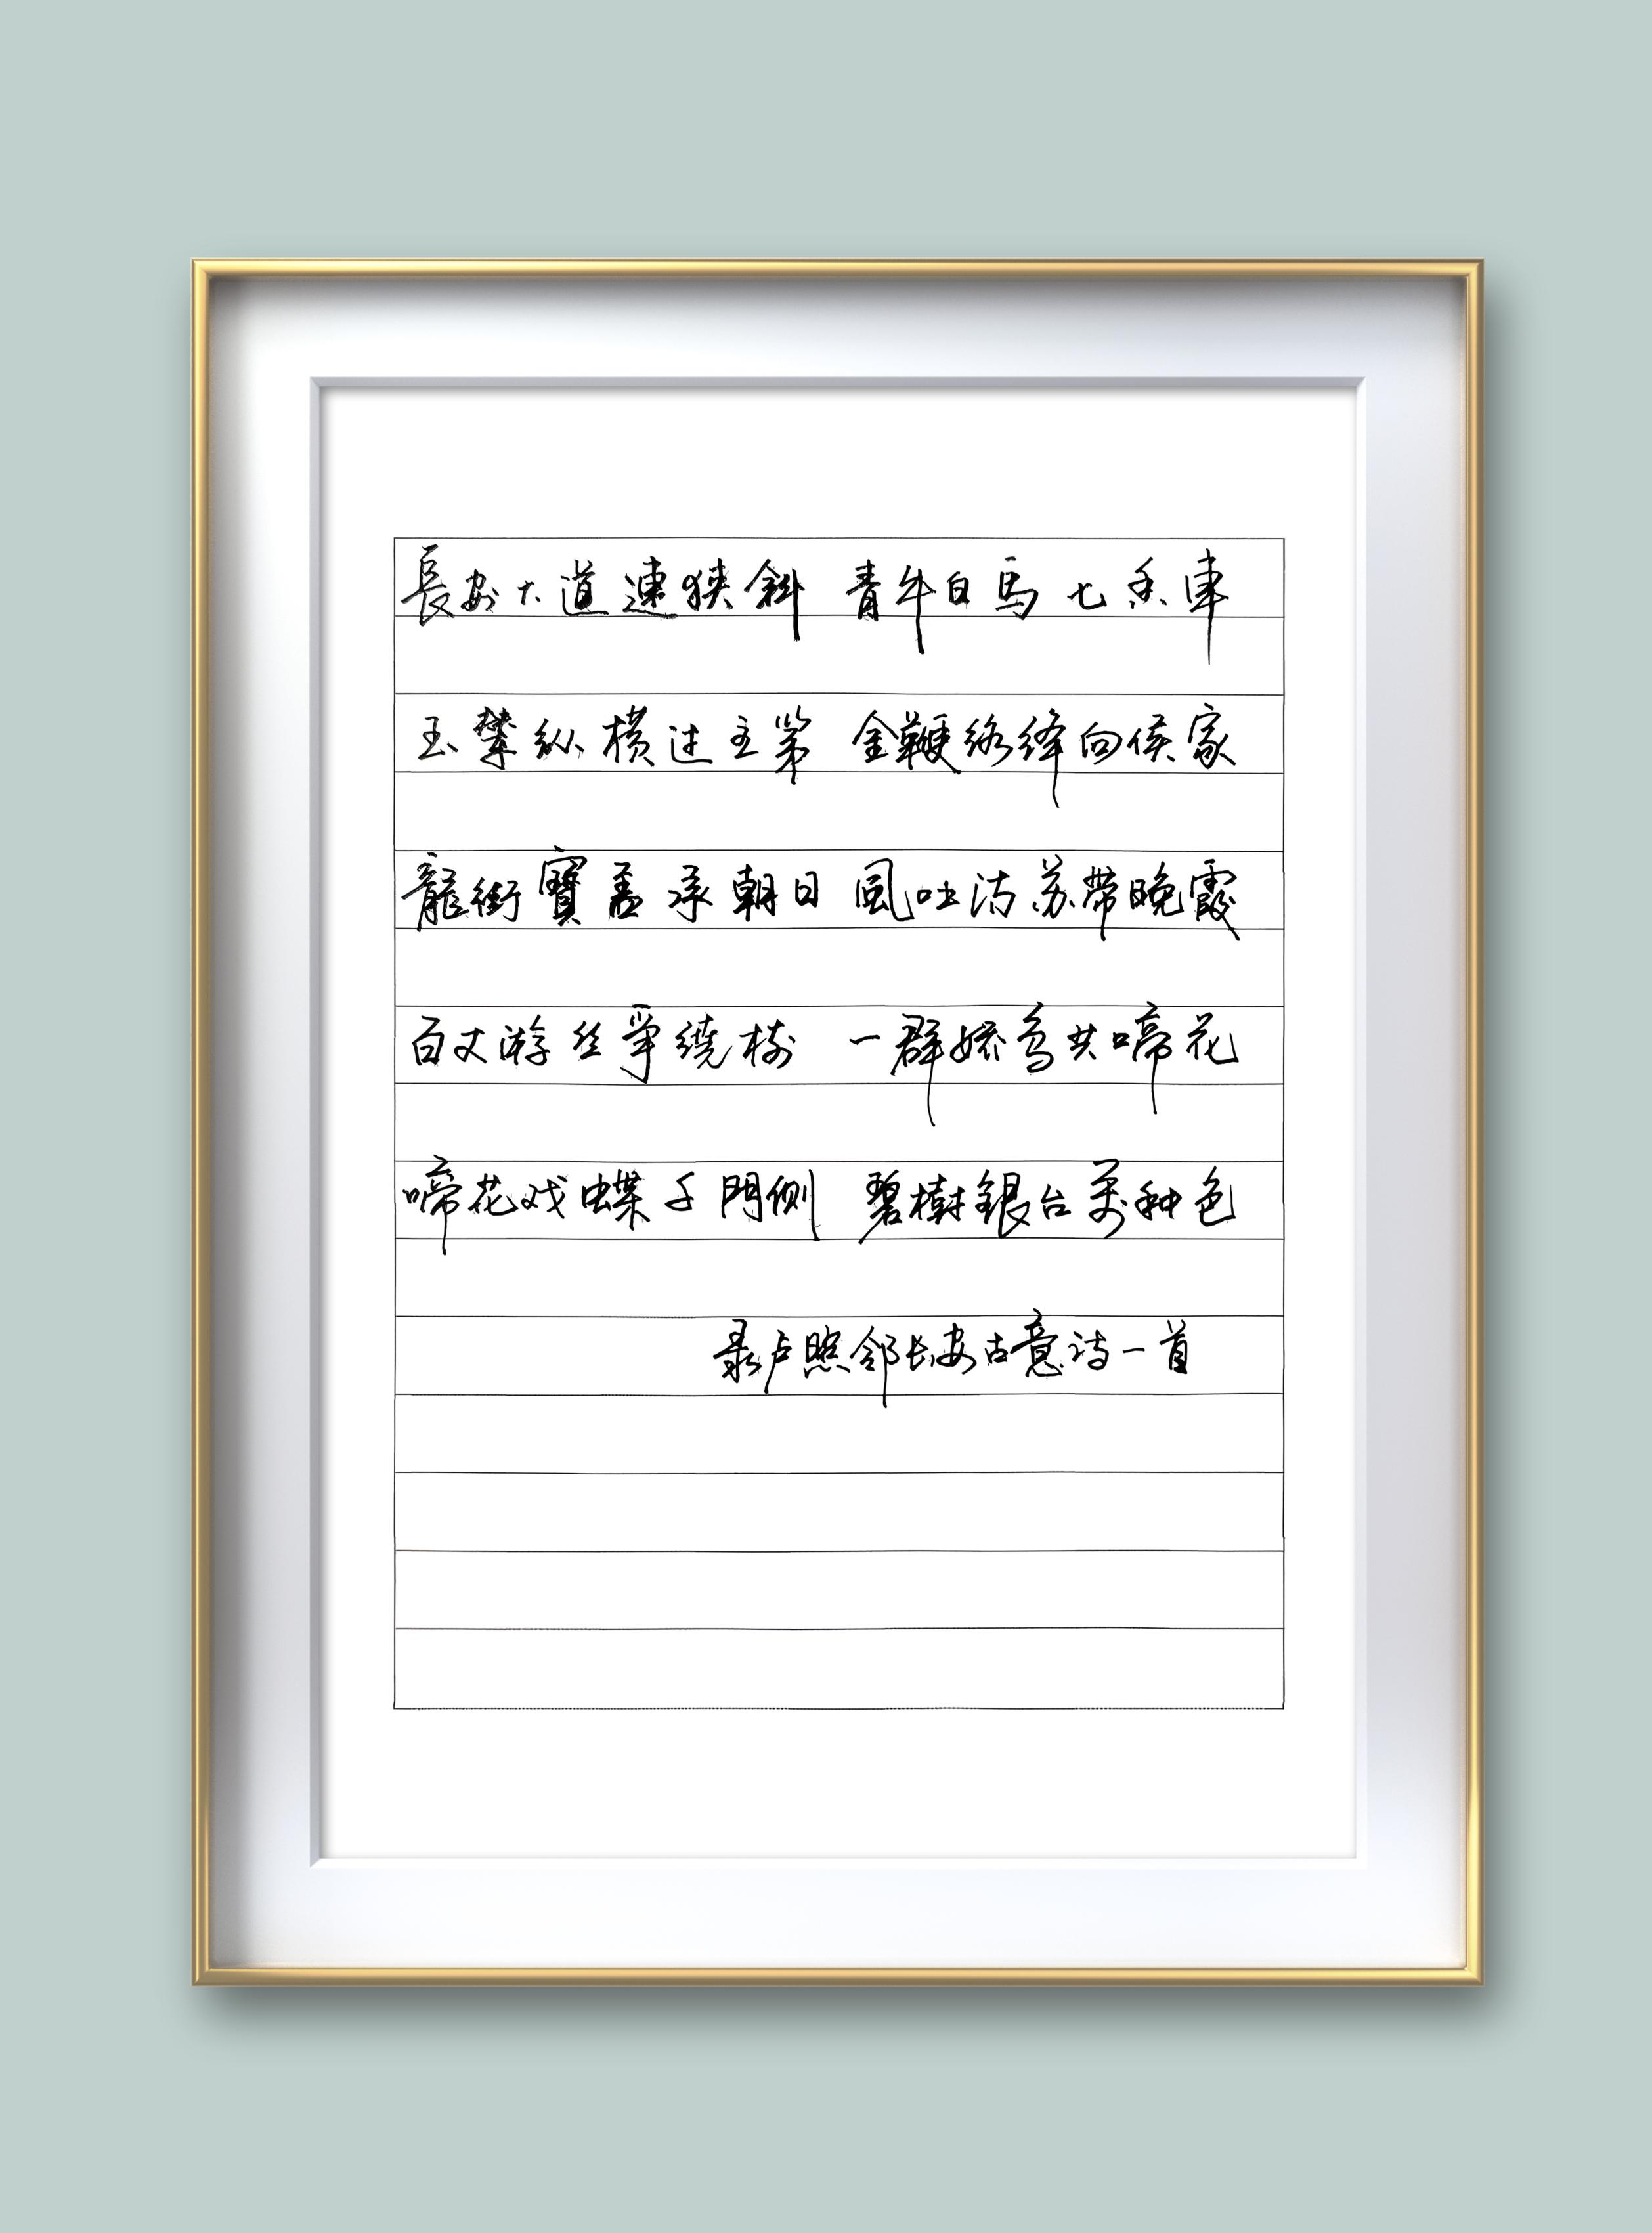 長安大道連狭斜 青牛白馬七香車
玉輦纵横过主第 金鞭络绎向侯家
龍銜寶盖承朝日 風吐流苏带晚霞
百丈游丝争繞树 一群娇鸟共啼花
啼花戏蝶千門侧 碧樹銀台万种色
录卢照邻长安古意诗一首